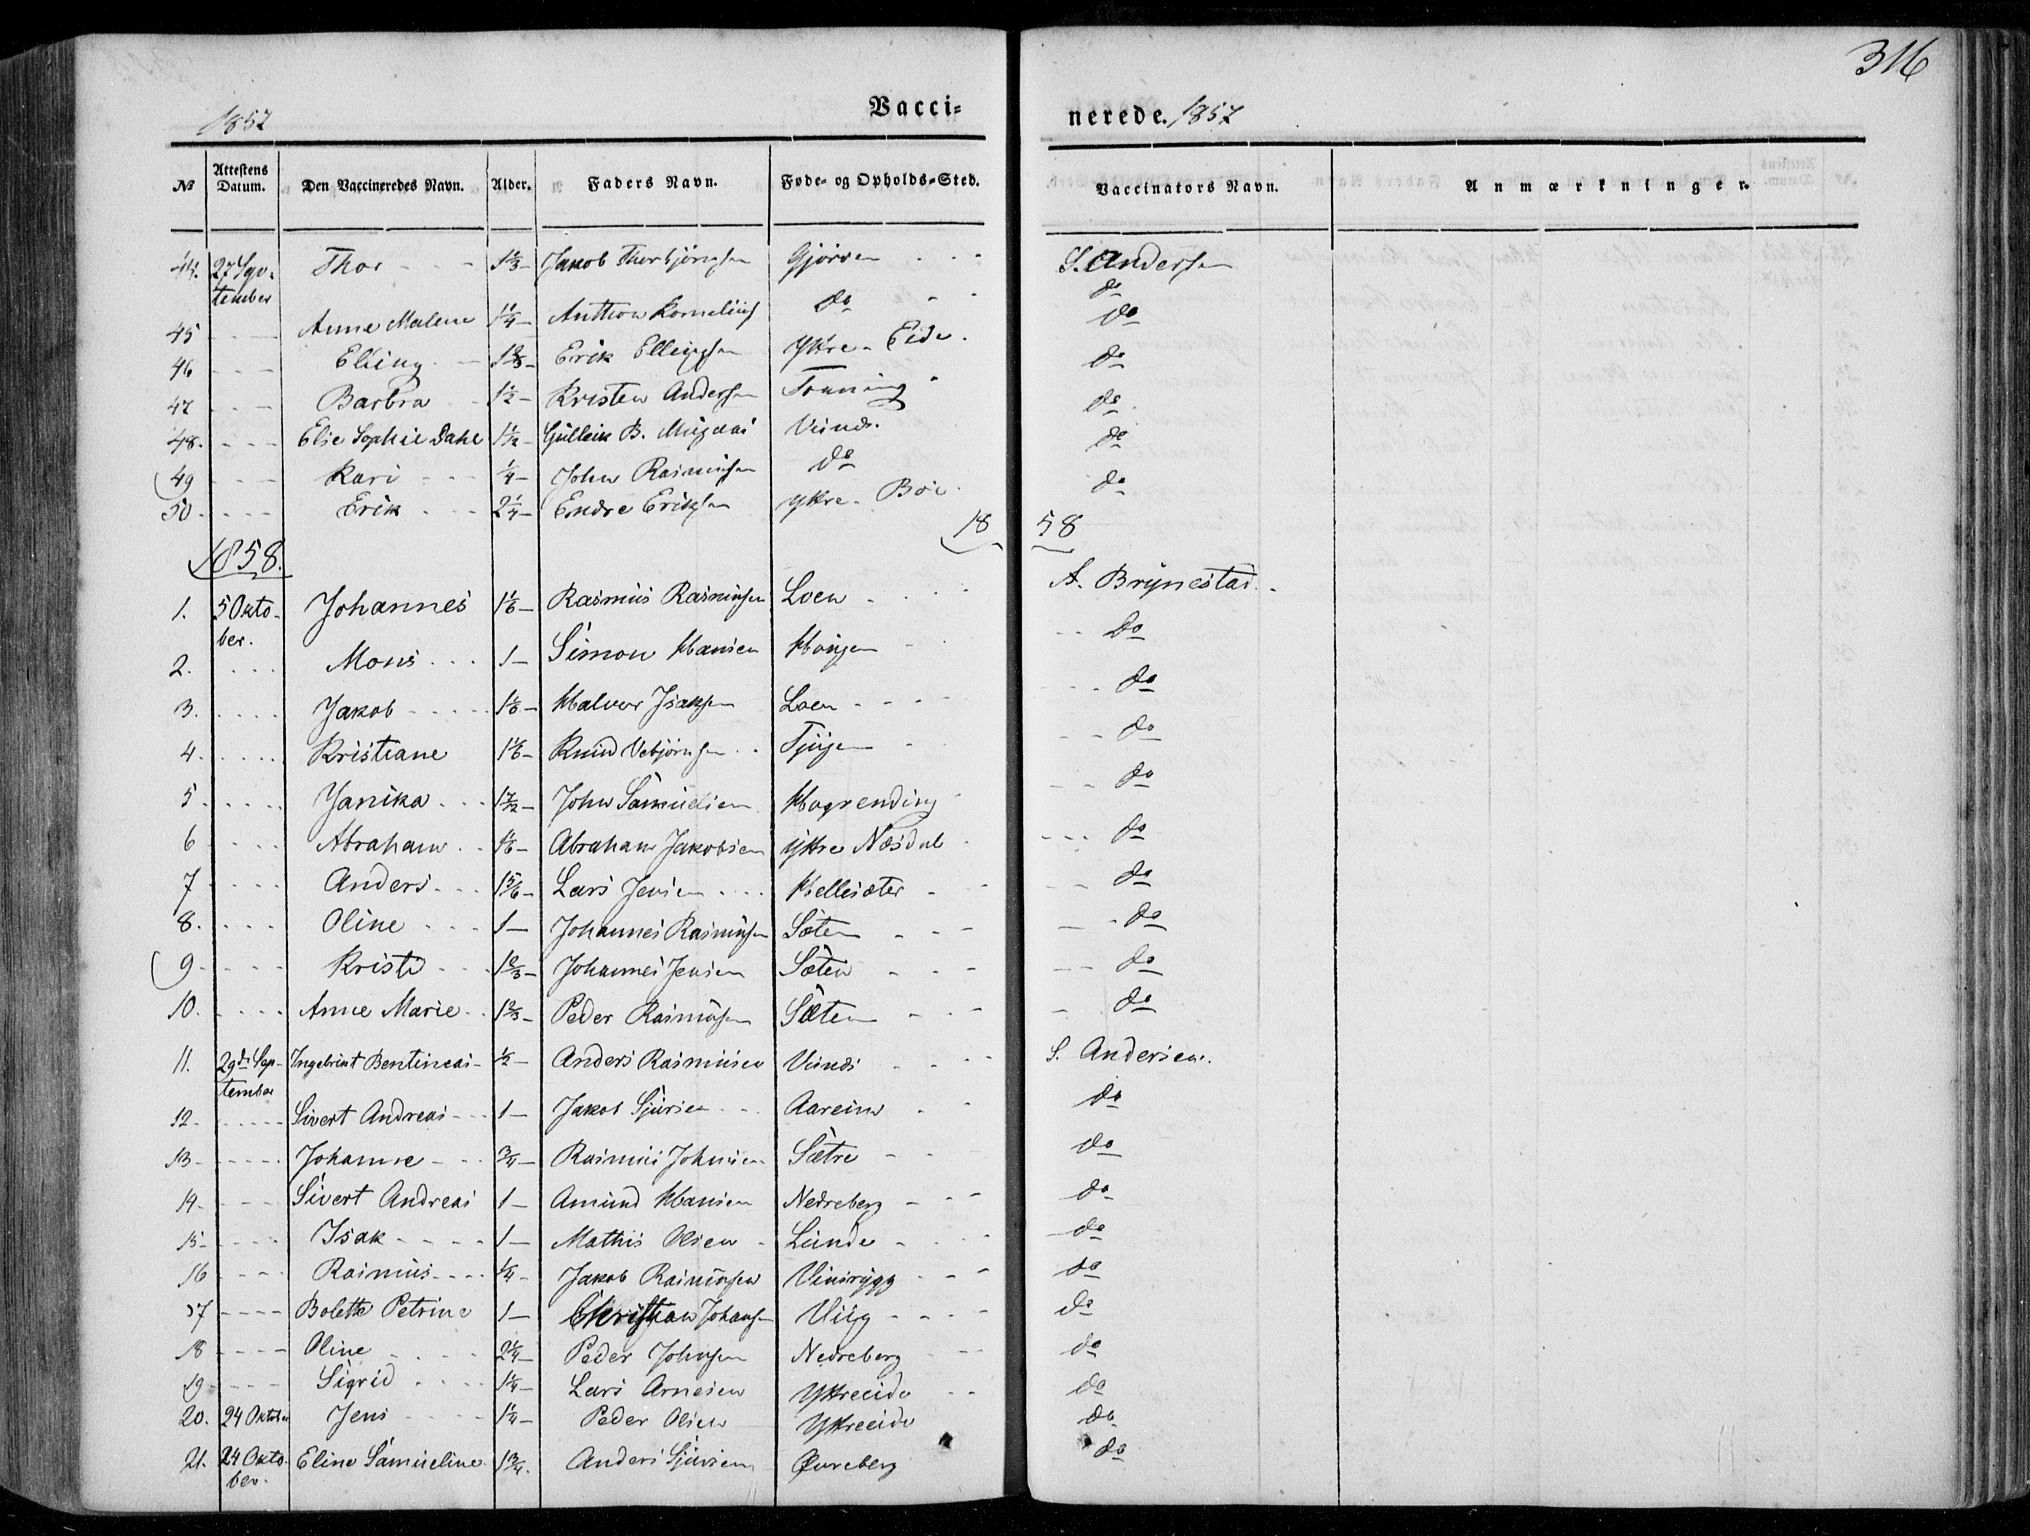 316
1857 Vacci- nerede. 1857
№ Attestens Datum. Den Vaccineredes Navn. Alder. Faders Navn. Føde- og Opholds-Sted. Vaccinators Navn. Anmærkninger.
44. 27 Sep- Thor 1 1/3 Jakob Thorbjørnsen Gjørven S. Andersen
tember do
45 Anne Malene 1 1/4 Anthon Kornelius do do
46 Elling 1 2/3 Erik Ellingsen Yttre Eide do
47 Barbra 1 1/2 Kristen Andersen Tonning do
48. Elie Sophie Dahl Gulleik B. Vinds. do
49 Kari 1/4 John Rasmussen do do
50 Erik 2 1/4 Endre Eriksen Yttre Böe
18 58
1858.
1. 5 Okto- Johannes 1 1/6 Rasmus Rasmussen Loen A. Brynestad
ber. do
2. Mons 1 Simon Hansen Haugen
3. Jakob 1 1/6 Halvor Isaksen Loen do
4. Kristiane 1 1/6 Knud Vebjørnsen Tjugen do
5. Janika 1 7/12 John Samuelsen Hogrending do
6 Abraham 1 1/6 Abraham Jakobsen Yttre Næsdal do
7 Anders 1 5/6 Lars Jensen Hellesæter do
8. Oline 1 Johannes Rasmussen Sæten do
9 Kristi 1 2/3 Johannes Jensen Sæten do
10. Anne Marie 1 2/3 Peder Rasmussen Sæten do
11. 29de Sep- Ingebrigt Bentineas 1/2 Anders Rasmusen Vinds S. Andersen.
tember
12 Sivert Andreas 1 Jakob Sjursen Aareim do
13 Johanne 3/4 Rasmus Johnsen Sætre do
14 Sivert Andreas 1 Amund Hansen Nedreberg do
15 Isak 1 Mathis Olsen Lunde do
16 Rasmus 1/4 Jakob Rasmussen Vinsrygg do
17 Bolette Petrine 1 Christian Johansen Viig do
18 Oline 2 1/4 Peder Johnsen Nedreberg do
19 Sigrid 1 1/4 Lars Arnesen Yttreeide do
20. 24 Oktober Jens 1 1/4 Peder Olsen Yttreeide do
21. 24 Okto- Eline Samueline 1 3/4 Anders Sjursen Øvreberg do
ber.